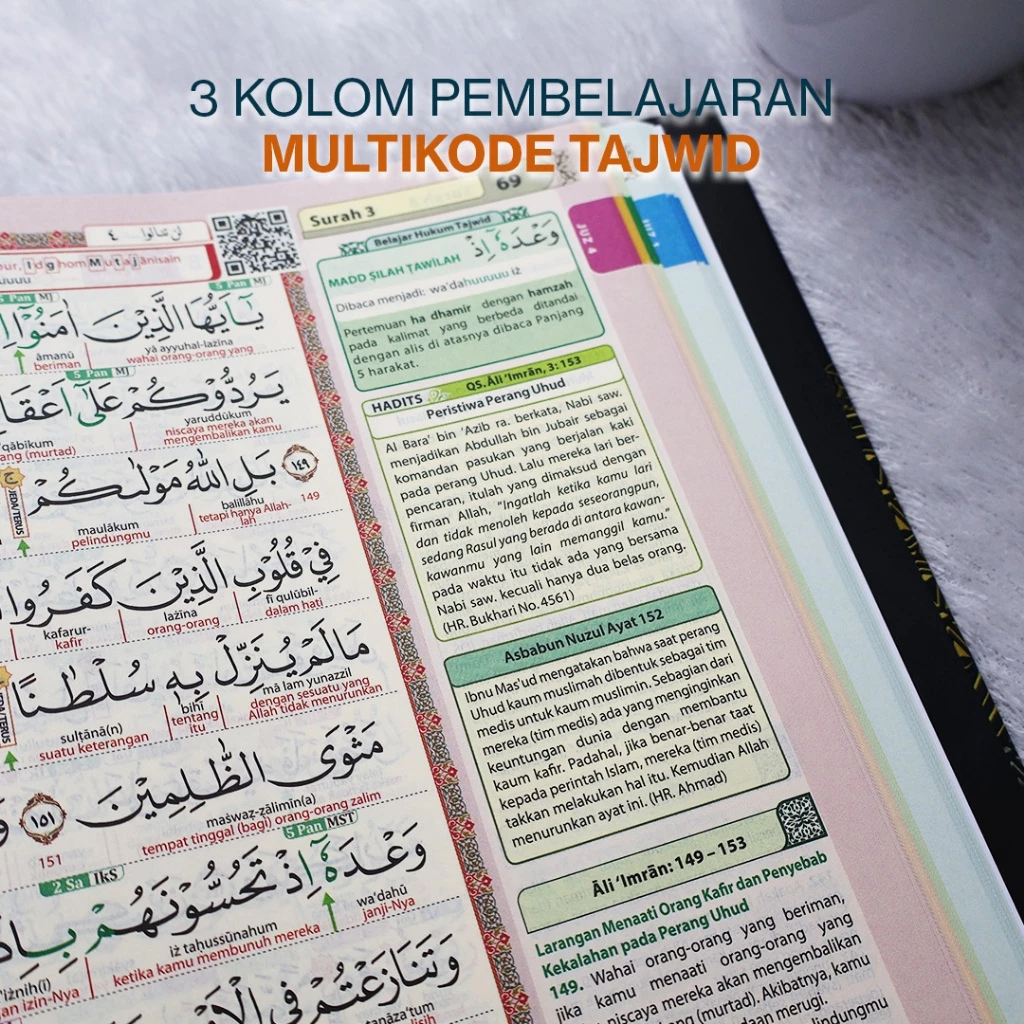 3 KOLOM PEMBELAJARAN
MULTIKODE TAJWID
Surah 3
69
JUZ 4
Belajar Hukum Tajwid
وَعْدَهٗٓ اِذْ
MADD ṢILAH ṬAWĪLAH
Dibaca menjadi: wa'dahuuuuu iż
Pertemuan ha dhamir dengan hamzah
pada kalimat yang berbeda ditandai
dengan alis di atasnya dibaca Panjang
5 harakat.
HADITS
QS. Āli 'Imrān, 3: 153
Peristiwa Perang Uhud
Al Bara' bin 'Azib ra. berkata, Nabi saw.
menjadikan Abdullah bin Jubair sebagai
komandan pasukan yang berjalan kaki
pada perang Uhud. Lalu mereka lari ber-
pencaran, itulah yang dimaksud dengan
firman Allah, "Ingatlah ketika kamu lari
dan tidak menoleh kepada seseorangpun,
sedang Rasul yang berada di antara kawan-
kawanmu yang lain memanggil kamu."
pada waktu itu tidak ada yang bersama
Nabi saw. kecuali hanya dua belas orang.
(HR. Bukhari No. 4561)
Asbabun Nuzul Ayat 152
Ibnu Mas'ud mengatakan bahwa saat perang
Uhud kaum muslimah dibentuk sebagai tim
medis untuk kaum muslimin. Sebagian dari
mereka (tim medis) ada yang menginginkan
keuntungan dunia dengan membantu
kaum kafir. Padahal, jika benar-benar taat
kepada perintah Islam, mereka (tim medis)
takkan melakukan hal itu. Kemudian Allah
menurunkan ayat ini. (HR. Ahmad)
Āli 'Imrān: 149 – 153
Larangan Menaati Orang Kafir dan Penyebab
Kekalahan pada Perang Uhud
149. Wahai orang-orang yang beriman,
jika kamu menaati orang-orang yang
niscaya mereka akan mengembalikan
(murtad). Akibatnya, kamu
merugi.
melindungmu
لن تنالوا ٤
5 Pan MJ
يٰٓاَيُّهَا الَّذِيْنَ اٰمَنُوْٓا
yā ayyuhal-lażīna
āmanū
wahai orang-orang yang
beriman
5 Pan MJ
يَرُدُّوْكُمْ عَلٰٓى
yaruddūkum
niscaya mereka akan
mengembalikan kamu
(murtad)
بَلِ اللّٰهُ مَوْلٰىكُمْ ۚ ١٤٩
JEDA/TERUS
balillāhu
maulākum
149
tetapi hanya Allah-
lah
pelindungmu
فِيْ قُلُوْبِ الَّذِيْنَ كَفَرُوا
fī qulūbil-
lażīna
kafarur-
dalam hati
orang-orang
kafir
مَا لَمْ يُنَزِّلْ بِهٖ سُلْطٰنًا
mā lam yunazzil
bihī
sulṭānā(n)
dengan sesuatu yang
Allah tidak menurunkan
tentang
itu
suatu keterangan
مَثْوَى الظّٰلِمِيْنَ ١٥١
maṡwaẓ-ẓālimīn(a)
tempat tinggal (bagi) orang-orang zalim
151
5 Pan MST
2 Sa IkS
وَعْدَهٗٓ اِذْ تَحُسُّوْنَهُمْ
wa'dahū
iż taḥussūnahum
janji-Nya
ketika kamu membunuh mereka
izin-Nya
وَتَنَازَعْتُمْ فِى